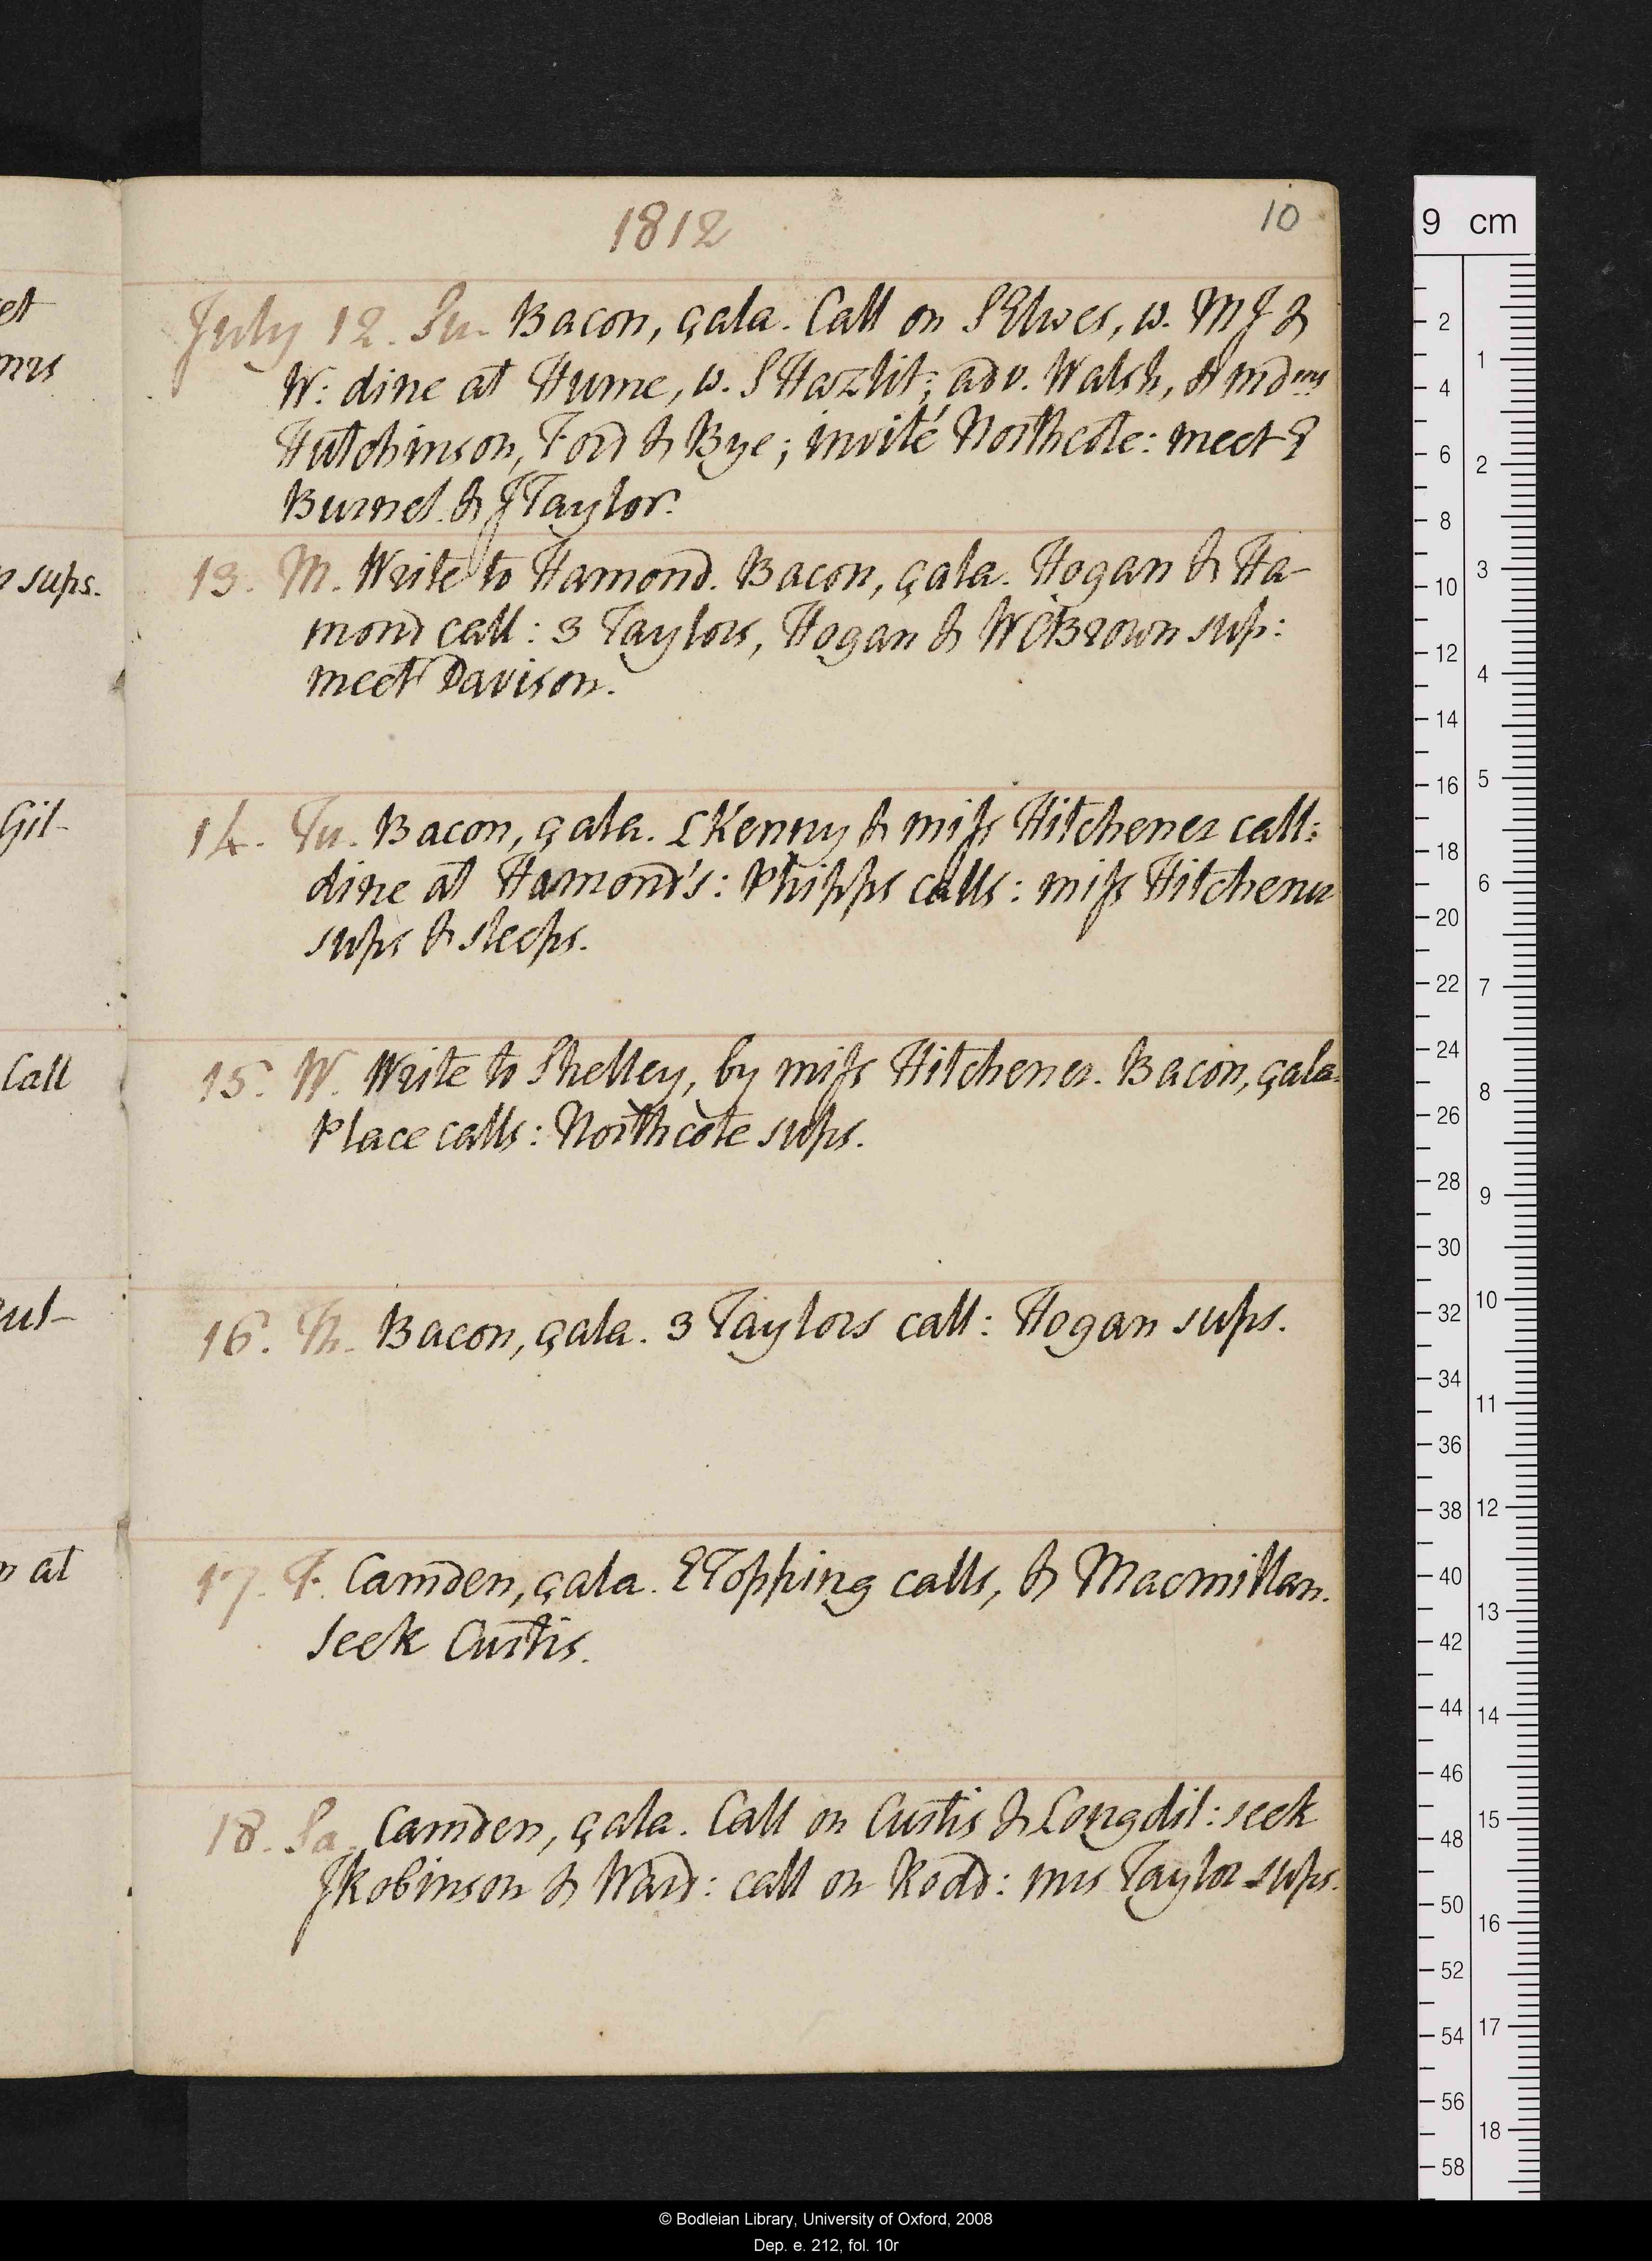 1812
10
et
July 12. Su. Bacon, çala. Call on SElwes, w. MJ &
mrs
W: dine at Hume, w. SHazlit; adv. Walsh, & mdms
Hutchinson, Ford & Bye; invité Northcote: meet E
Burnet & JTaylor.
sups.
13. M. Write to Hamond. Bacon, çala. Hogan & Ha-
mond call: 3 Taylors, Hogan & WCBrown sup:
meet Davison.
Gil-
14. Tu. Bacon, çala. LKenny & miss Hitchener call:
dine at Hamond's: Phipps calls: miss Hitchener
sups & sleeps.
Call
15. W. Write to Shelley, by miss Hitchener. Bacon, çala.
Place calls: Northcote sups.
16. Th. Bacon, çala. 3 Taylors call: Hogan sups.
at
17. F. Camden, çala. ETopping calls, & Macmillan.
seek Curtis.
18. Sa. Camden, çala. Call on Curtis & Longdil: seek
JRobinson & Ward: call on Rodd: mrs Taylor sups.
9 cm
2
4
6
8
10
12
14
16
18
20
22
24
26
28
30
32
34
36
38
40
42
44
46
48
50
52
54
56
58
1
2
3
4
5
6
7
8
9
10
11
12
13
14
15
16
17
18
© Bodleian Library, University of Oxford, 2008
Dep. e. 212, fol. 10r